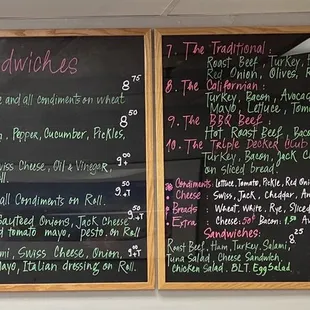 dwiches
8 75
and all condiments on wheat
8 50
, Pepper, Cucumber, Pickles,
9 00
Swiss Cheese, Oil & Vinegar,
Roll.
9 50 +T
all Condiments on Roll.
Sauteed Onions, Jack Cheese 9 50 +T
d tomato mayo, pesto, on Roll
mi, Swiss Cheese, Onion, 9 00 +T
Mayo, Italian dressing on Roll.
7. The Traditional:
Roast Beef, Turkey, H
Red Onion, Olives, R
8. The Californian:
Turkey, Bacon, Avoca
Mayo, Lettuce, Tom
9. The BBQ Beef:
Hot, Roast Beef, Ba
10. The Triple Decker Club
Turkey, Bacon, Jack C
on sliced bread.
Condiments: Lettuce, Tomato, Pickle, Red Oni
Cheese: Swiss, Jack, Cheddar, Am
Breads: Wheat, White, Rye, Sliced
Extra: Cheese: 50¢ Bacon: 1.50 A
Sandwiches: 8.25
Roast Beef, Ham, Turkey, Salami,
Tuna Salad, Cheese Sandwich,
Chicken Salad, B.L.T. Egg Salad.